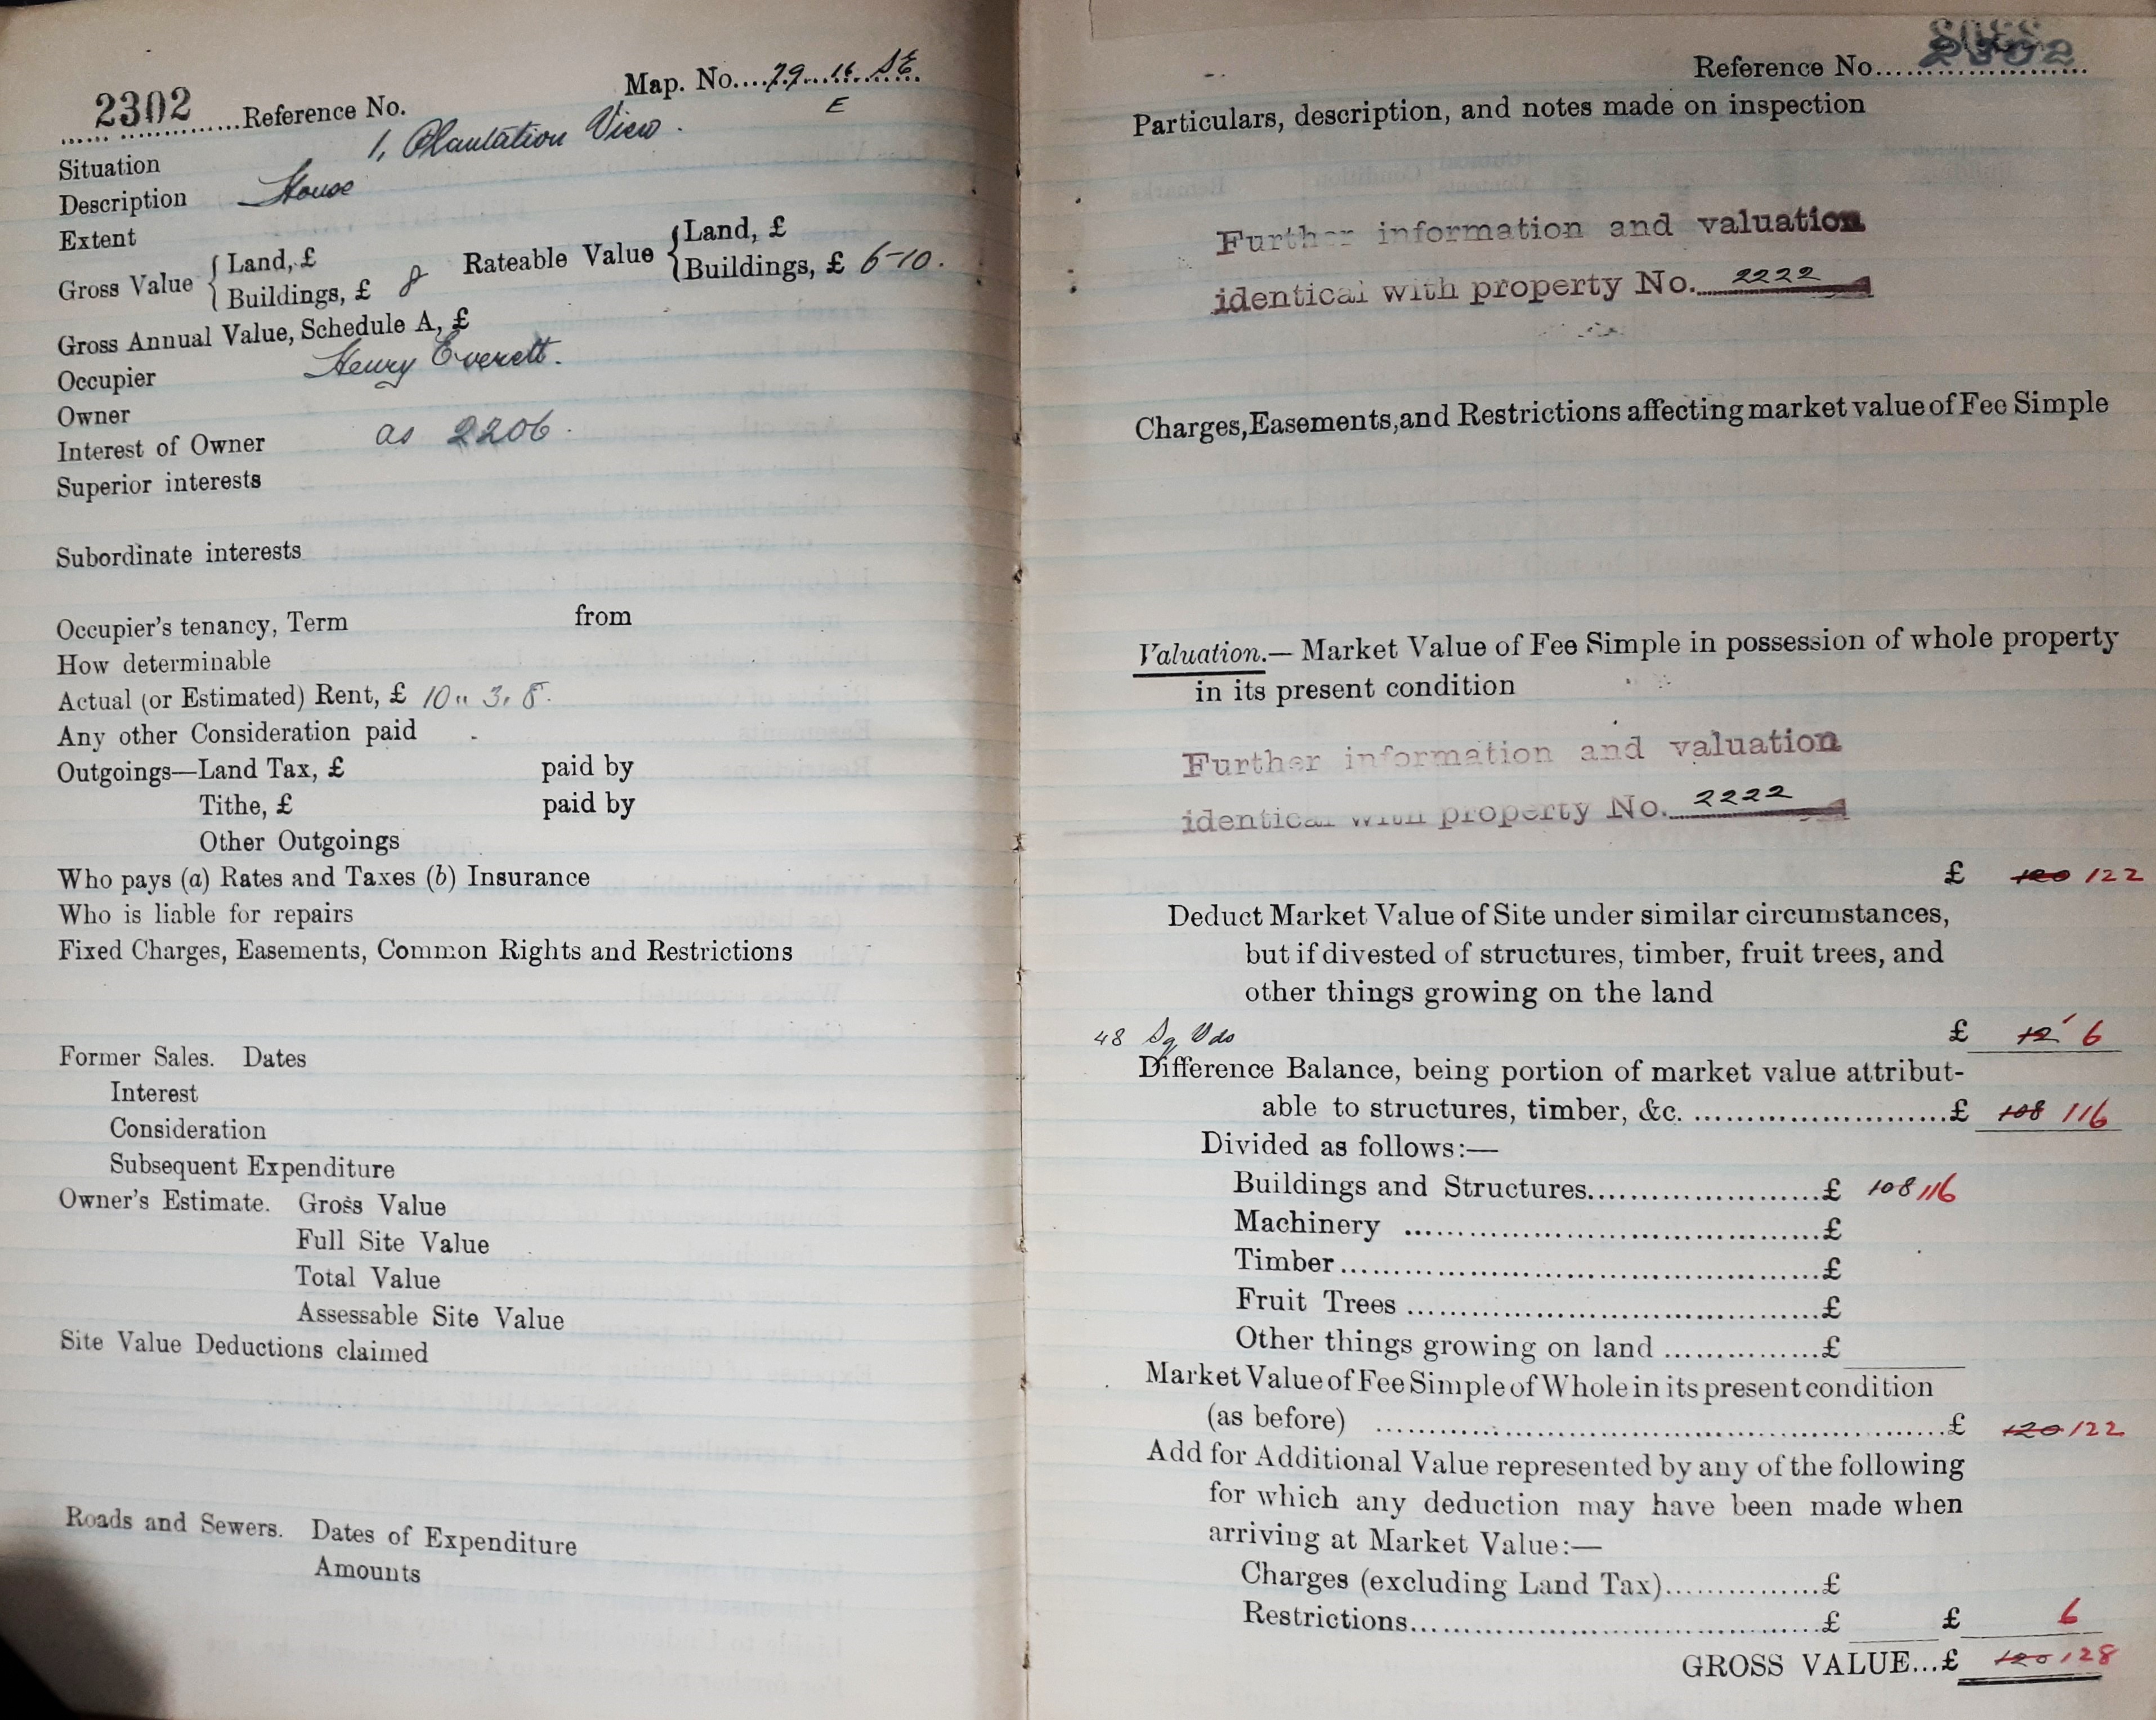 2302 Reference No. Map. No. 79 16 SE
E
Situation 1, Plantation View.
Description House
Extent
Gross Value { Land, £ Rateable Value { Land, £
Buildings, £ 8 Buildings, £ 6-10.
Gross Annual Value, Schedule A, £
Occupier Henry Everett.
Owner
Interest of Owner as 2206.
Superior interests
Subordinate interests
Occupier's tenancy, Term from
How determinable
Actual (or Estimated) Rent, £ 10 " 3, 8.
Any other Consideration paid
Outgoings—Land Tax, £ paid by
Tithe, £ paid by
Other Outgoings
Who pays (a) Rates and Taxes (b) Insurance
Who is liable for repairs
Fixed Charges, Easements, Common Rights and Restrictions
Former Sales. Dates
Interest
Consideration
Subsequent Expenditure
Owner's Estimate. Gross Value
Full Site Value
Total Value
Assessable Site Value
Site Value Deductions claimed
Roads and Sewers. Dates of Expenditure
Amounts
Reference No. 2302
Particulars, description, and notes made on inspection
Further information and valuation
identical with property No. 2222
Charges, Easements, and Restrictions affecting market value of Fee Simple
Valuation.— Market Value of Fee Simple in possession of whole property
in its present condition
Further information and valuation
identical with property No. 2222
£ 120 122
Deduct Market Value of Site under similar circumstances,
but if divested of structures, timber, fruit trees, and
other things growing on the land
48 Sq Yds £ 12 6
Difference Balance, being portion of market value attribut-
able to structures, timber, &c. £ 108 116
Divided as follows:—
Buildings and Structures £ 108 116
Machinery £
Timber £
Fruit Trees £
Other things growing on land £
Market Value of Fee Simple of Whole in its present condition
(as before) £ 120 122
Add for Additional Value represented by any of the following
for which any deduction may have been made when
arriving at Market Value:—
Charges (excluding Land Tax) £
Restrictions £ £ 6
GROSS VALUE...£ 120 128